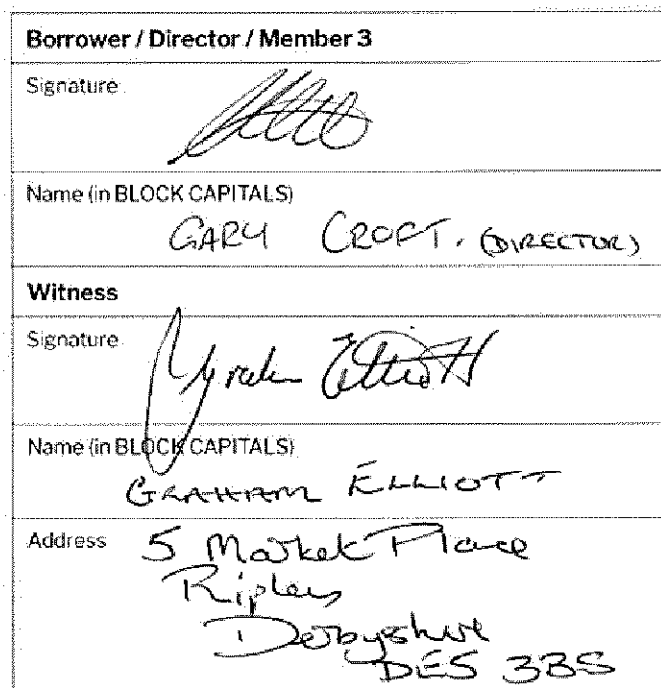 Borrower / Director / Member 3
Signature
Name (in BLOCK CAPITALS)
GARY CROFT. (DIRECTOR)
Witness
Signature
Graham Elliott
Name (in BLOCK CAPITALS)
GRAHAM ELLIOTT
Address 5 Market Place
Ripley
Derbyshire
DE5 3BS